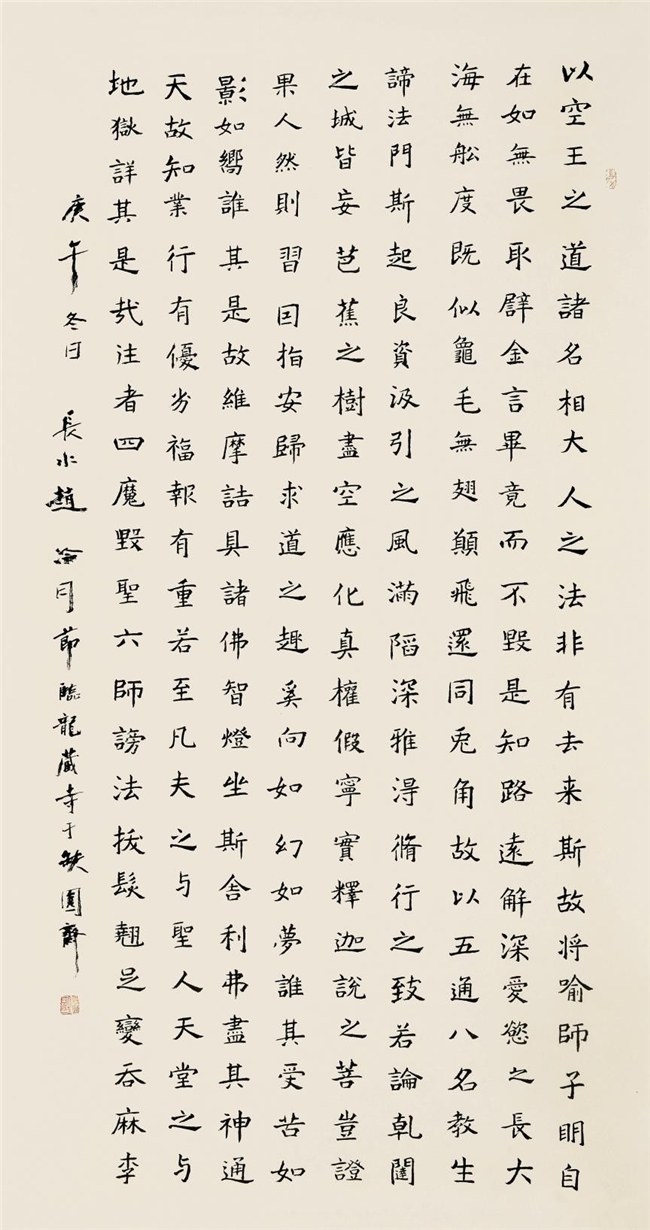 以空王之道諸名相大人之法非有去来斯故将喻師子明自
在如無畏取譬金言畢竟而不毀是知路遠解深愛慾之長大
海無舩度既似龜毛無翅顛飛還同兎角故以五通八名教生
諦法門斯起良資汲引之風滿蹈深雅淂脩行之致若論乹闥
之城皆妄芭蕉之樹盡空應化真權假寧實釋迦說之菩豈證
果人然則習因指安歸求道之趣奚向如幻如夢誰其受苦如
影如嚮誰其是故維摩詰具諸佛智燈坐斯舍利弗盡其神通
天故知業行有優劣福報有重若至凡夫之与聖人天堂之与
地獄詳其是哉注者四魔毀聖六師謗法拔髮翹足變吞麻李
庚午冬日 長水趙冷月節臨龍藏寺于缺圓齋